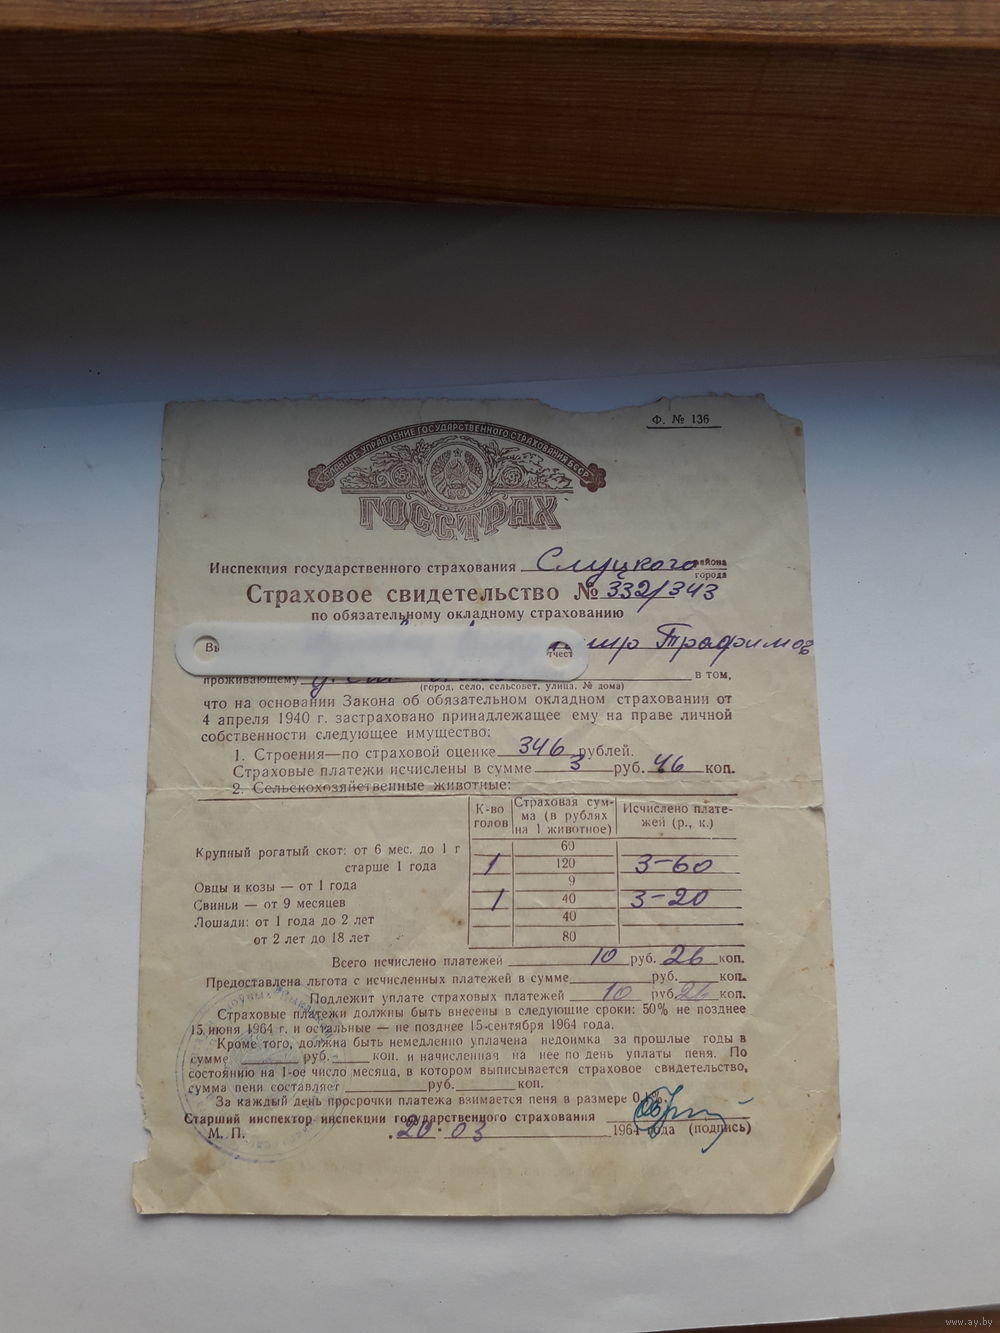 Ф. № 136
ГЛАВНОЕ УПРАВЛЕНИЕ ГОСУДАРСТВЕННОГО СТРАХОВАНИЯ БССР
ГОССТРАХ
Инспекция государственного страхования Слуцкого района
города
Страховое свидетельство № 332/343
по обязательному окладному страхованию
Вы
проживающему в том,
(город, село, сельсовет, улица, № дома)
что на основании Закона об обязательном окладном страховании от
4 апреля 1940 г. застраховано принадлежащее ему на праве личной
собственности следующее имущество:
1. Строения—по страховой оценке 346 рублей.
Страховые платежи исчислены в сумме 3 руб. 46 коп.
2. Сельскохозяйственные животные:
К-во голов Страховая сумма (в рублях на 1 животное) Исчислено платежей (р., к.)
Крупный рогатый скот: от 6 мес. до 1 г 60
старше 1 года 1 120 3-60
Овцы и козы — от 1 года 9
Свиньи — от 9 месяцев 1 40 3-20
Лошади: от 1 года до 2 лет 40
от 2 лет до 18 лет 80
Всего исчислено платежей 10 руб. 26 коп.
Предоставлена льгота с исчисленных платежей в сумме руб. коп.
Подлежит уплате страховых платежей 10 руб. 26 коп.
Страховые платежи должны быть внесены в следующие сроки: 50% не позднее
15 июня 1964 г. и остальные — не позднее 15 сентября 1964 года.
Кроме того, должна быть немедленно уплачена недоимка за прошлые годы в
сумме руб. коп. и начисленная на нее по день уплаты пеня. По
состоянию на 1-ое число месяца, в котором выписывается страховое свидетельство,
сумма пени составляет руб. коп.
За каждый день просрочки платежа взимается пеня в размере 0,1%.
Старший инспектор инспекции государственного страхования
М. П. 20.03 1964 года (подпись)
www.ay.by